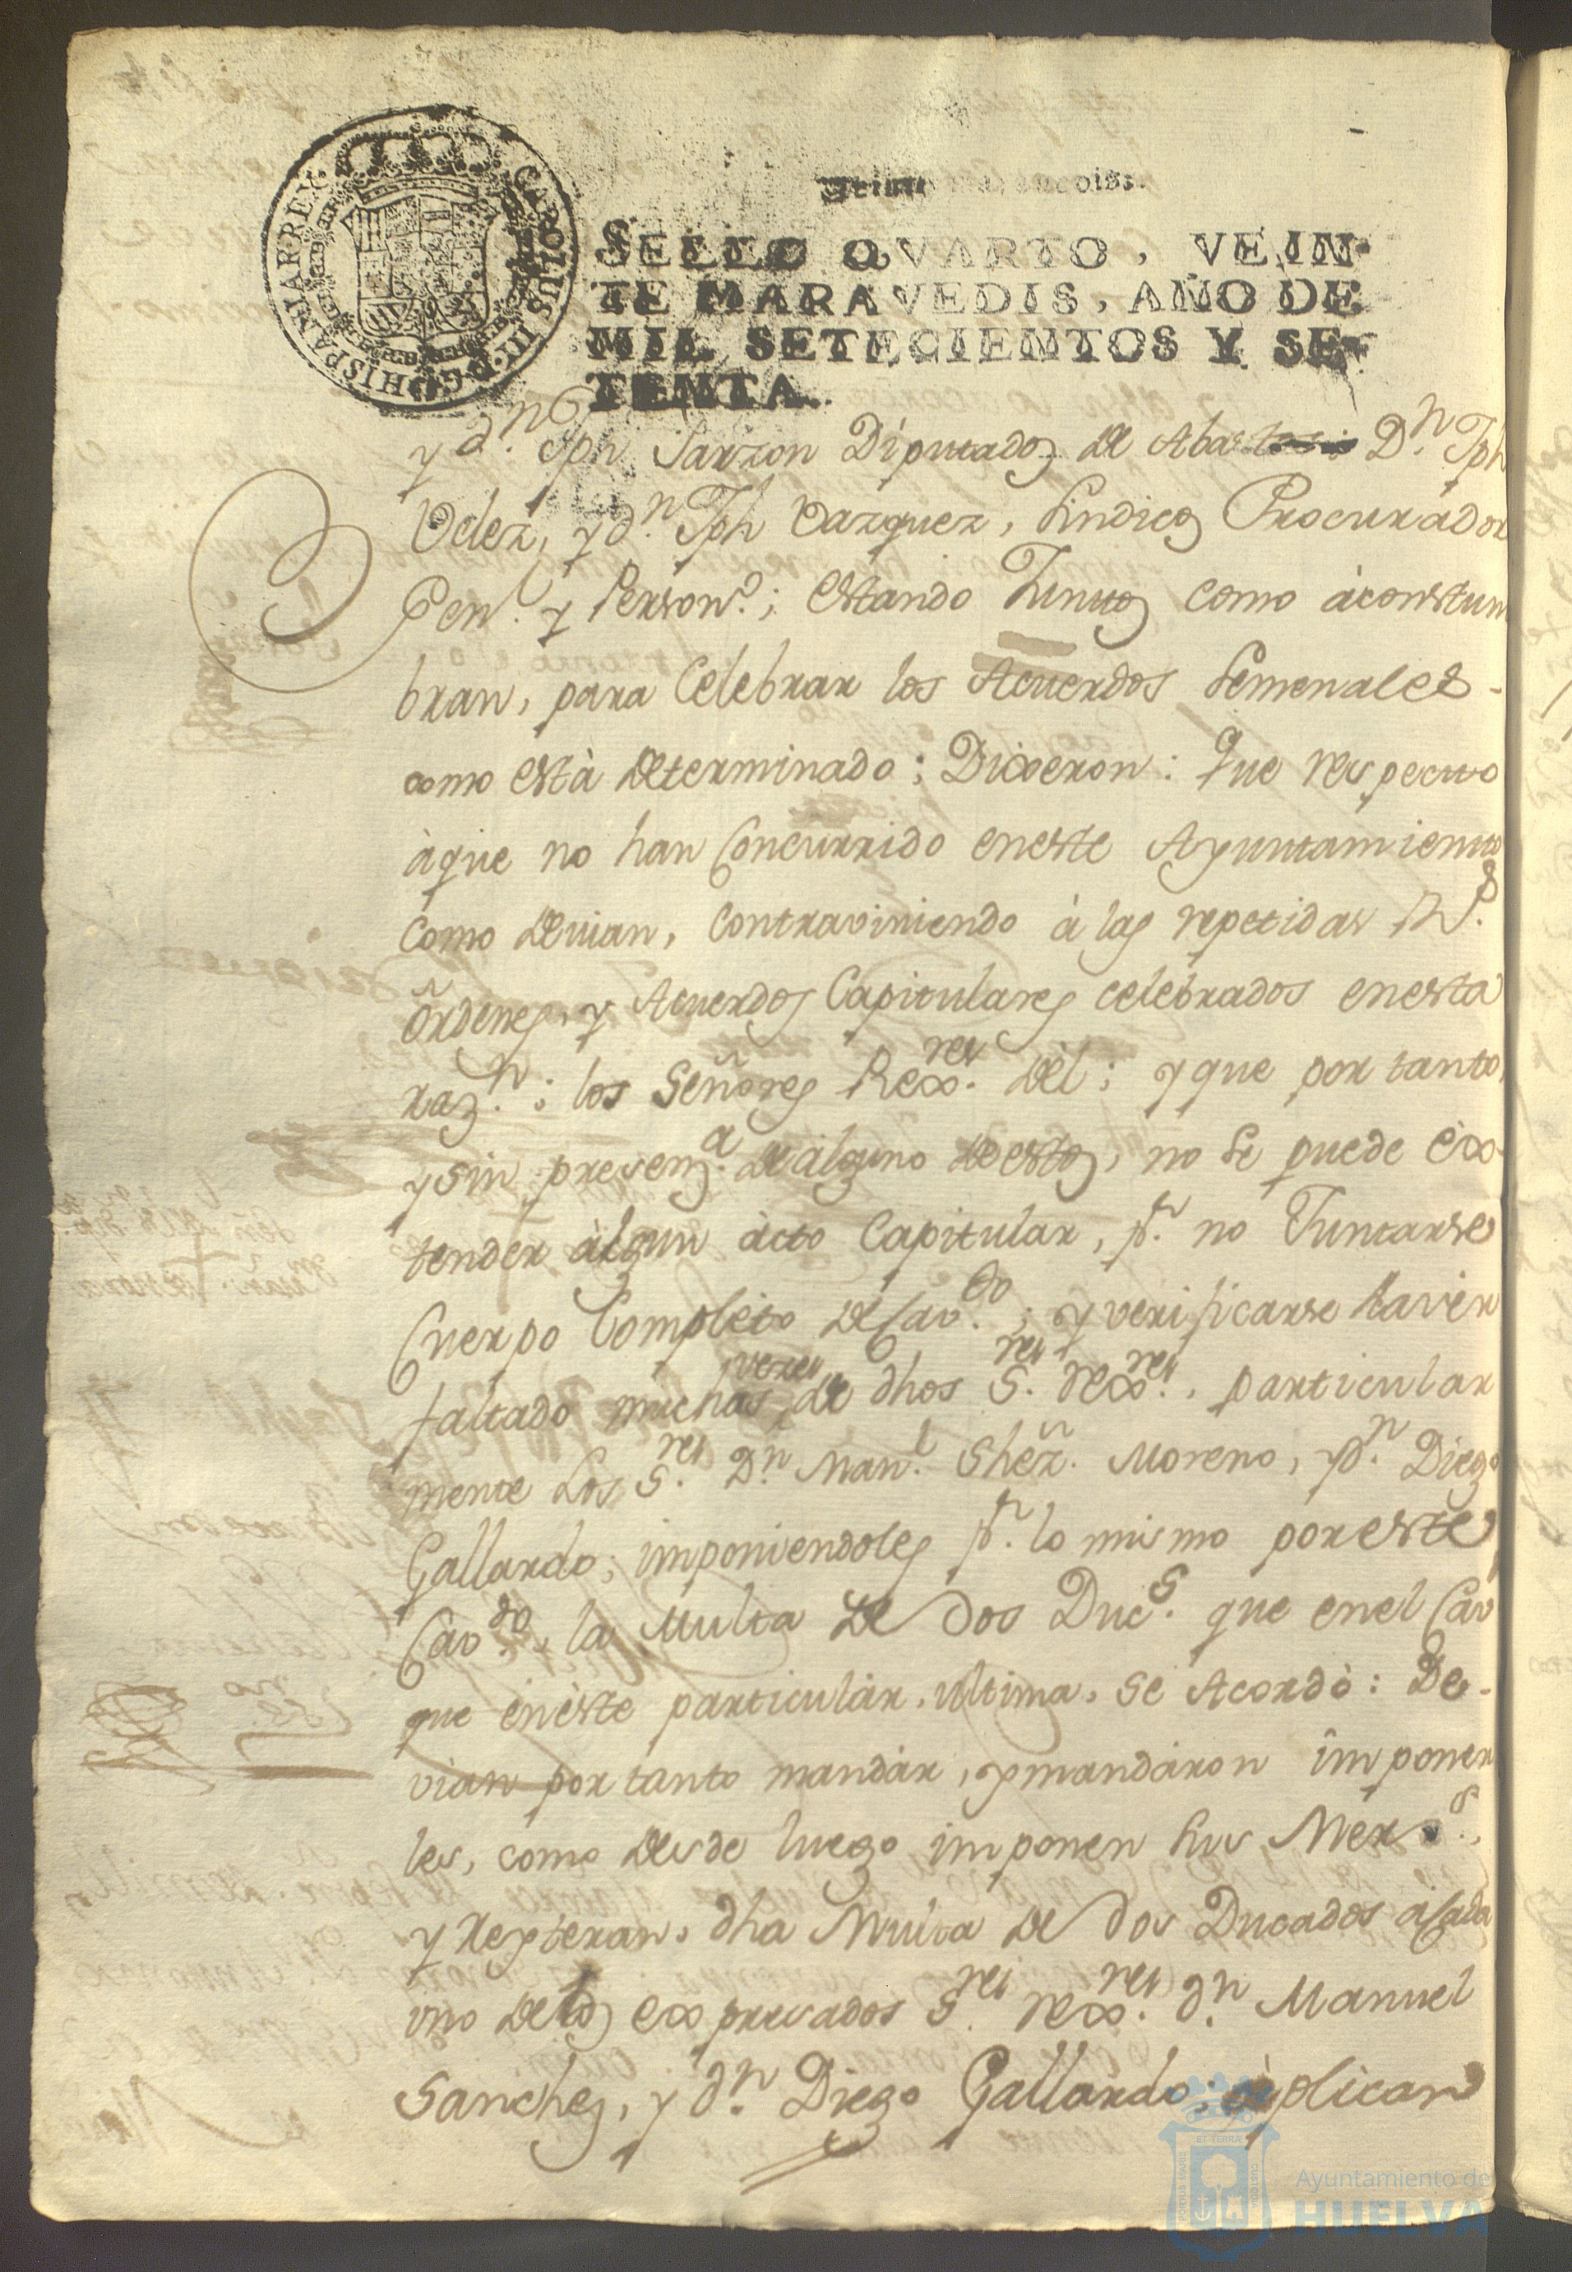 CAROLUS III D.G. HISPANIAR. REX.
SELLO QVARTO, VEIN-
TE MARAVEDIS, AÑO DE
MIL SETECIENTOS Y SE-
TENTA.
y dn. Jph Garzon Diputados de Abastos: Dn. Jph
Velez, y dn. Jph Vazquez, Sindicos Procurador
Genl. y Person.o; estando Juntos como àcostum
bran, para Celebrar los Acuerdos Semenales
como està determinado; Dixeron: Que respecto
àque no han Concurrido eneste Ayuntamiento
como devian, contraviniendo à las repetidas Rs.
Òrdenes, y Acuerdos Capitulares celebrados enesta
razn.; los Señores Rexres. dèl; y que por tanto,
y sin presenza. de alguno de estos, no se puede èx-
tender àlgun àcto Capitular, pr. no Juntarse
Cuerpo Completo de Cavdo.; y verificarse haver
faltado muchas vezes de dhos Sres. rexres., particular
mente los Sres. Dn Manl. Shez. Moreno, y Dn. Diego
Gallardo; imponiendoles pr. lo mismo poreste
Cavdo. la Multa de dos Ducs. que enel Cav
que èneste particular, ultima, se Acordò: De-
vian por tanto mandàr, y mandàron imponer
les, como desde luego imponen sus Mers.,
y Reyteran, dha Multa de dos Ducados à Cada
vno de los expresados Sres. rexres. dn. Manuel
Sanchez, y dn. Diego Gallardo; àplicar
Ayuntamiento de
HUELVA